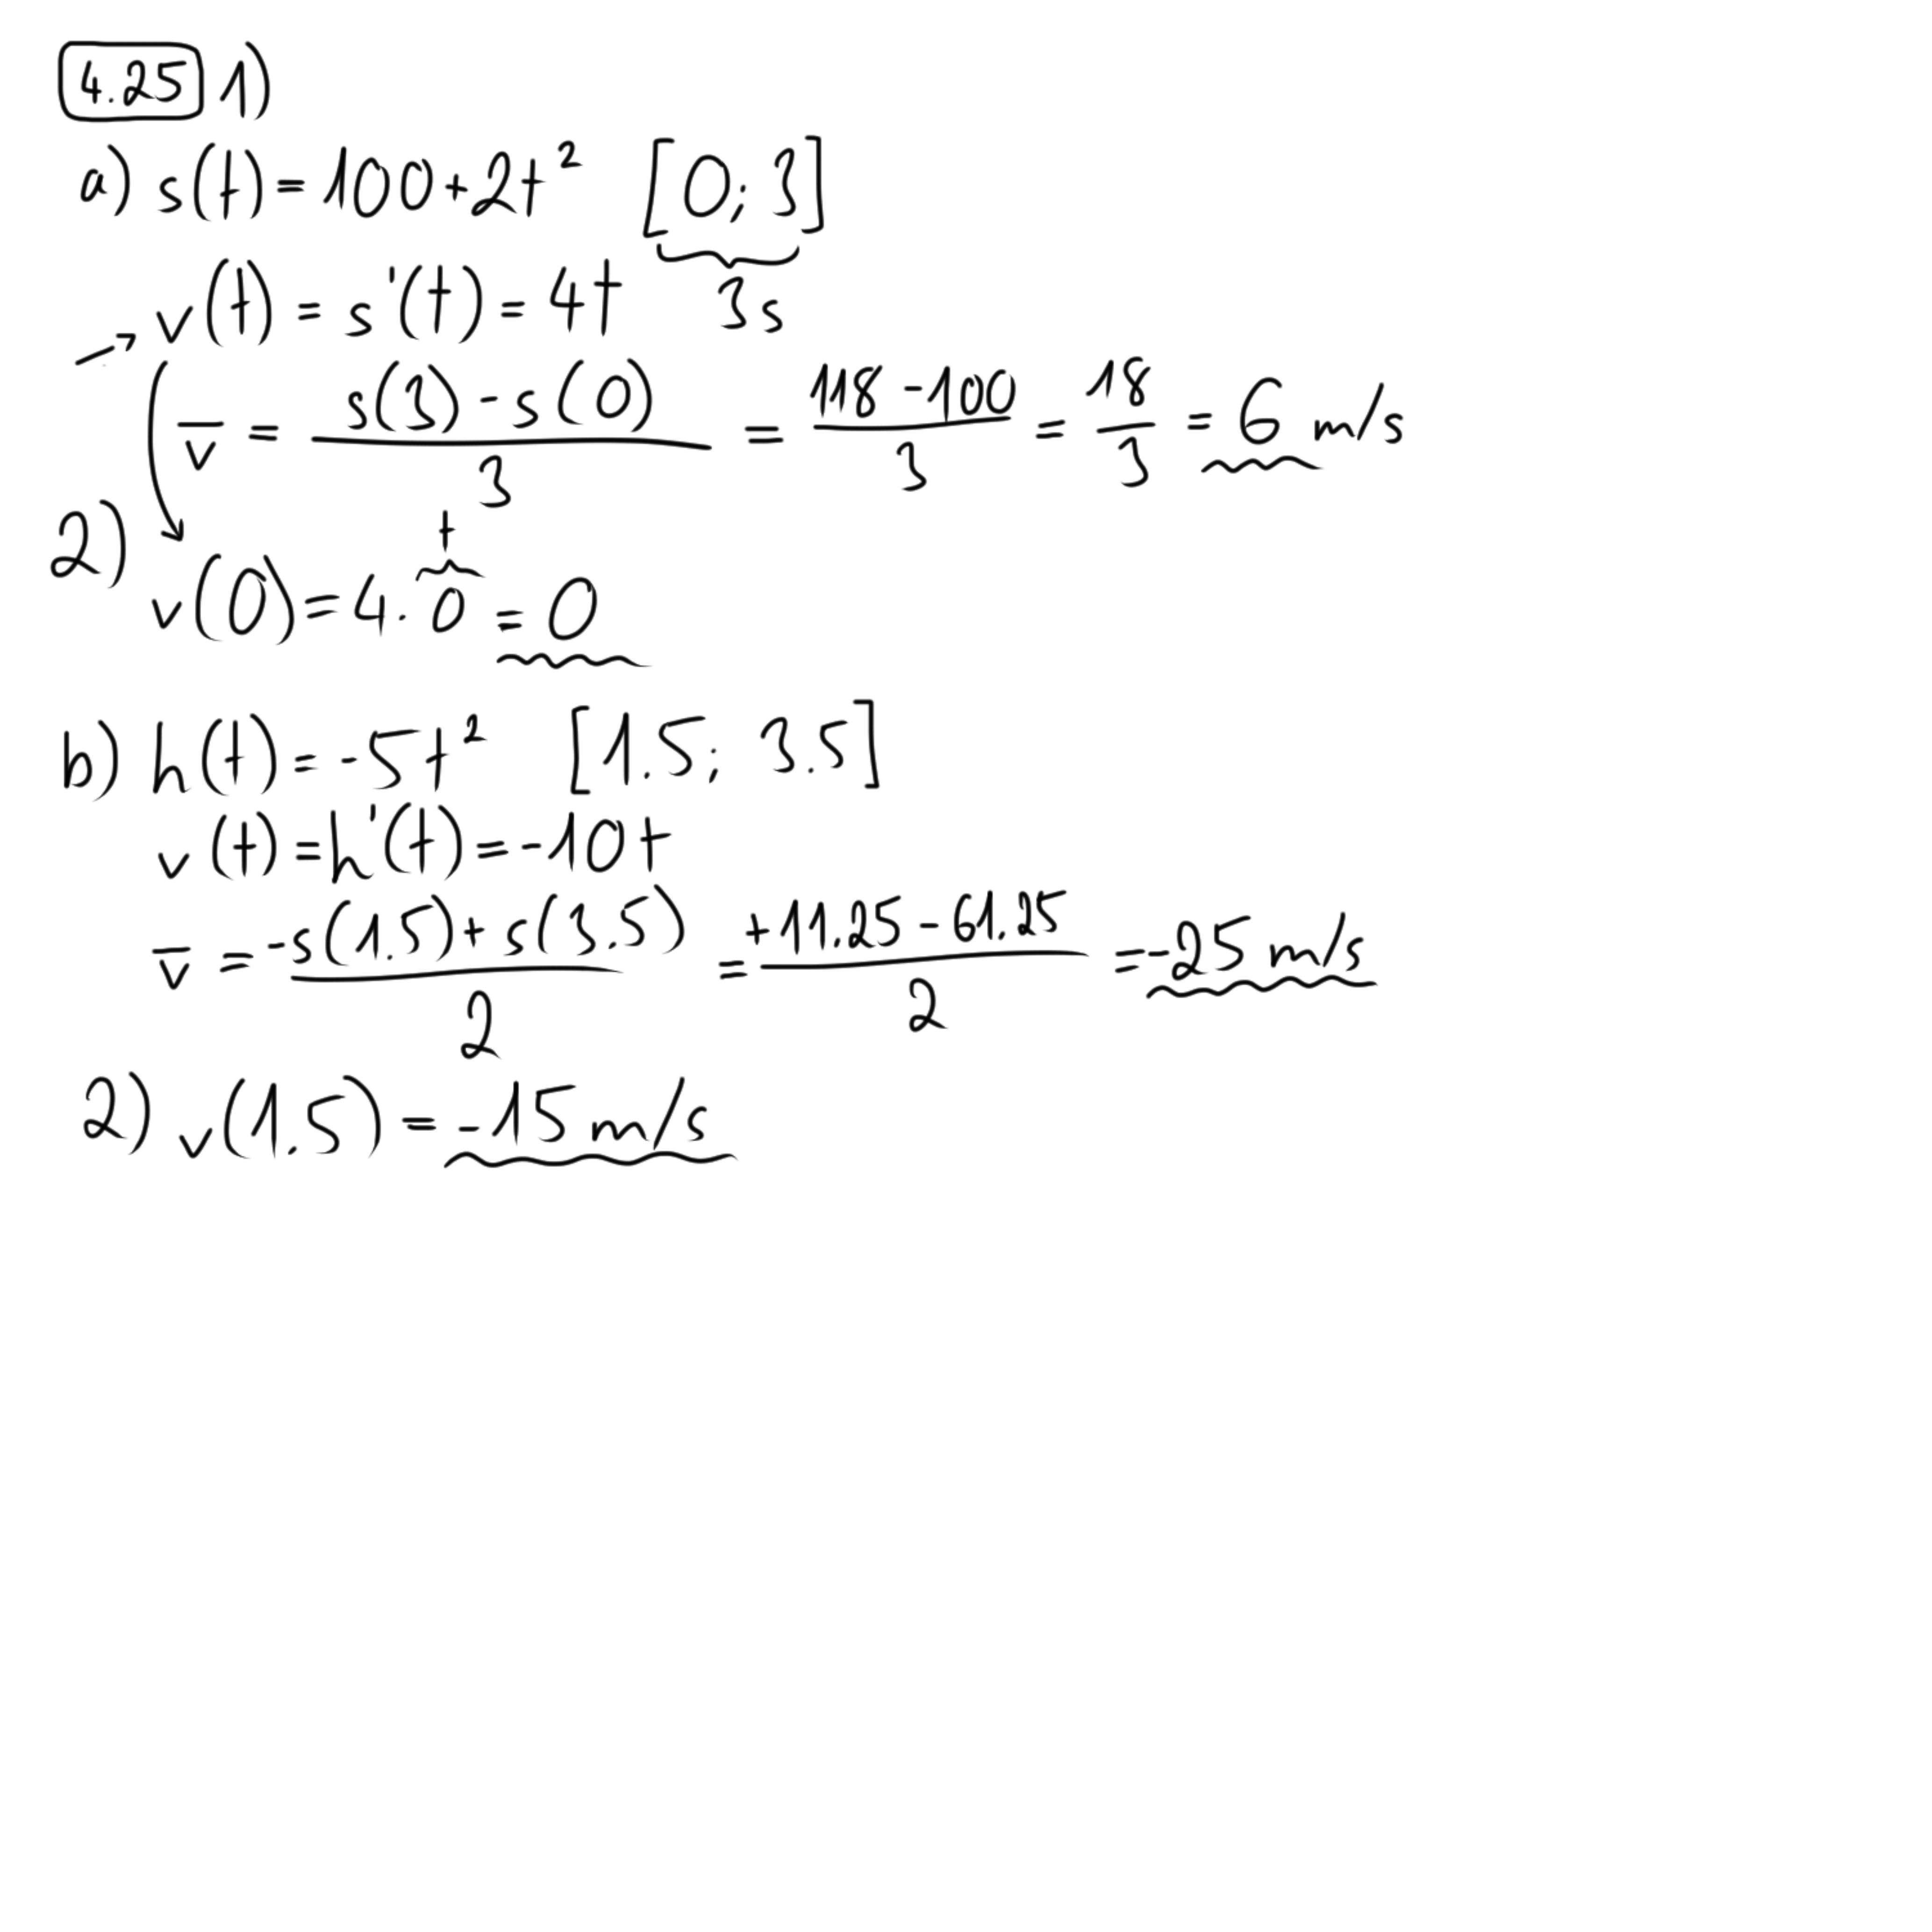 4.25 1)
a) s(t) = 100+2t² [0; 3]
v(t) = s'(t) = 4t 3s
v̅ = (s(3) - s(0))/3 = (118 - 100)/3 = 18/3 = 6 m/s
t
2) v(0) = 4 · 0 = 0
b) h(t) = -5t² [1.5; 3.5]
v(t) = h'(t) = -10t
v̅ = (-s(1.5) + s(3.5))/2 = (+11.25 - 61.25)/2 = -25 m/s
2) v(1.5) = -15 m/s